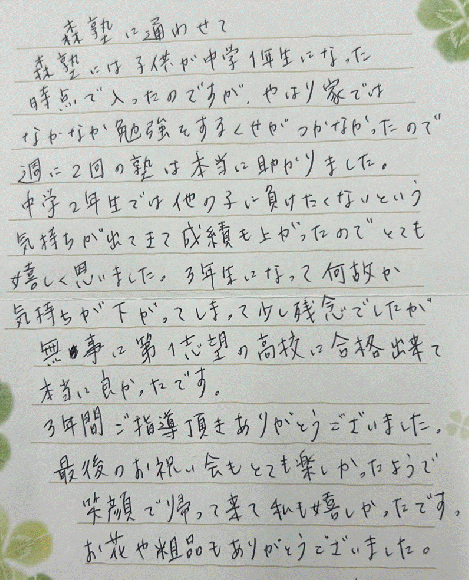 森塾に通わせて
森塾には子供が中学1年生になった
時点で入ったのですが、やはり家では
なかなか勉強をするくせがつかなかったので
週に2回の塾は本当に助かりました。
中学2年生では他の子に負けたくないという
気持ちが出てきて成績も上がったのでとても
嬉しく思いました。3年生になって何故か
気持ちが下がってしまって少し残念でしたが
無事に第1志望の高校に合格出来て
本当に良かったです。
3年間ご指導頂きありがとうございました。
最後のお祝い会もとても楽しかったようで
笑顔で帰って来て私も嬉しかったです。
お花や粗品もありがとうございました。